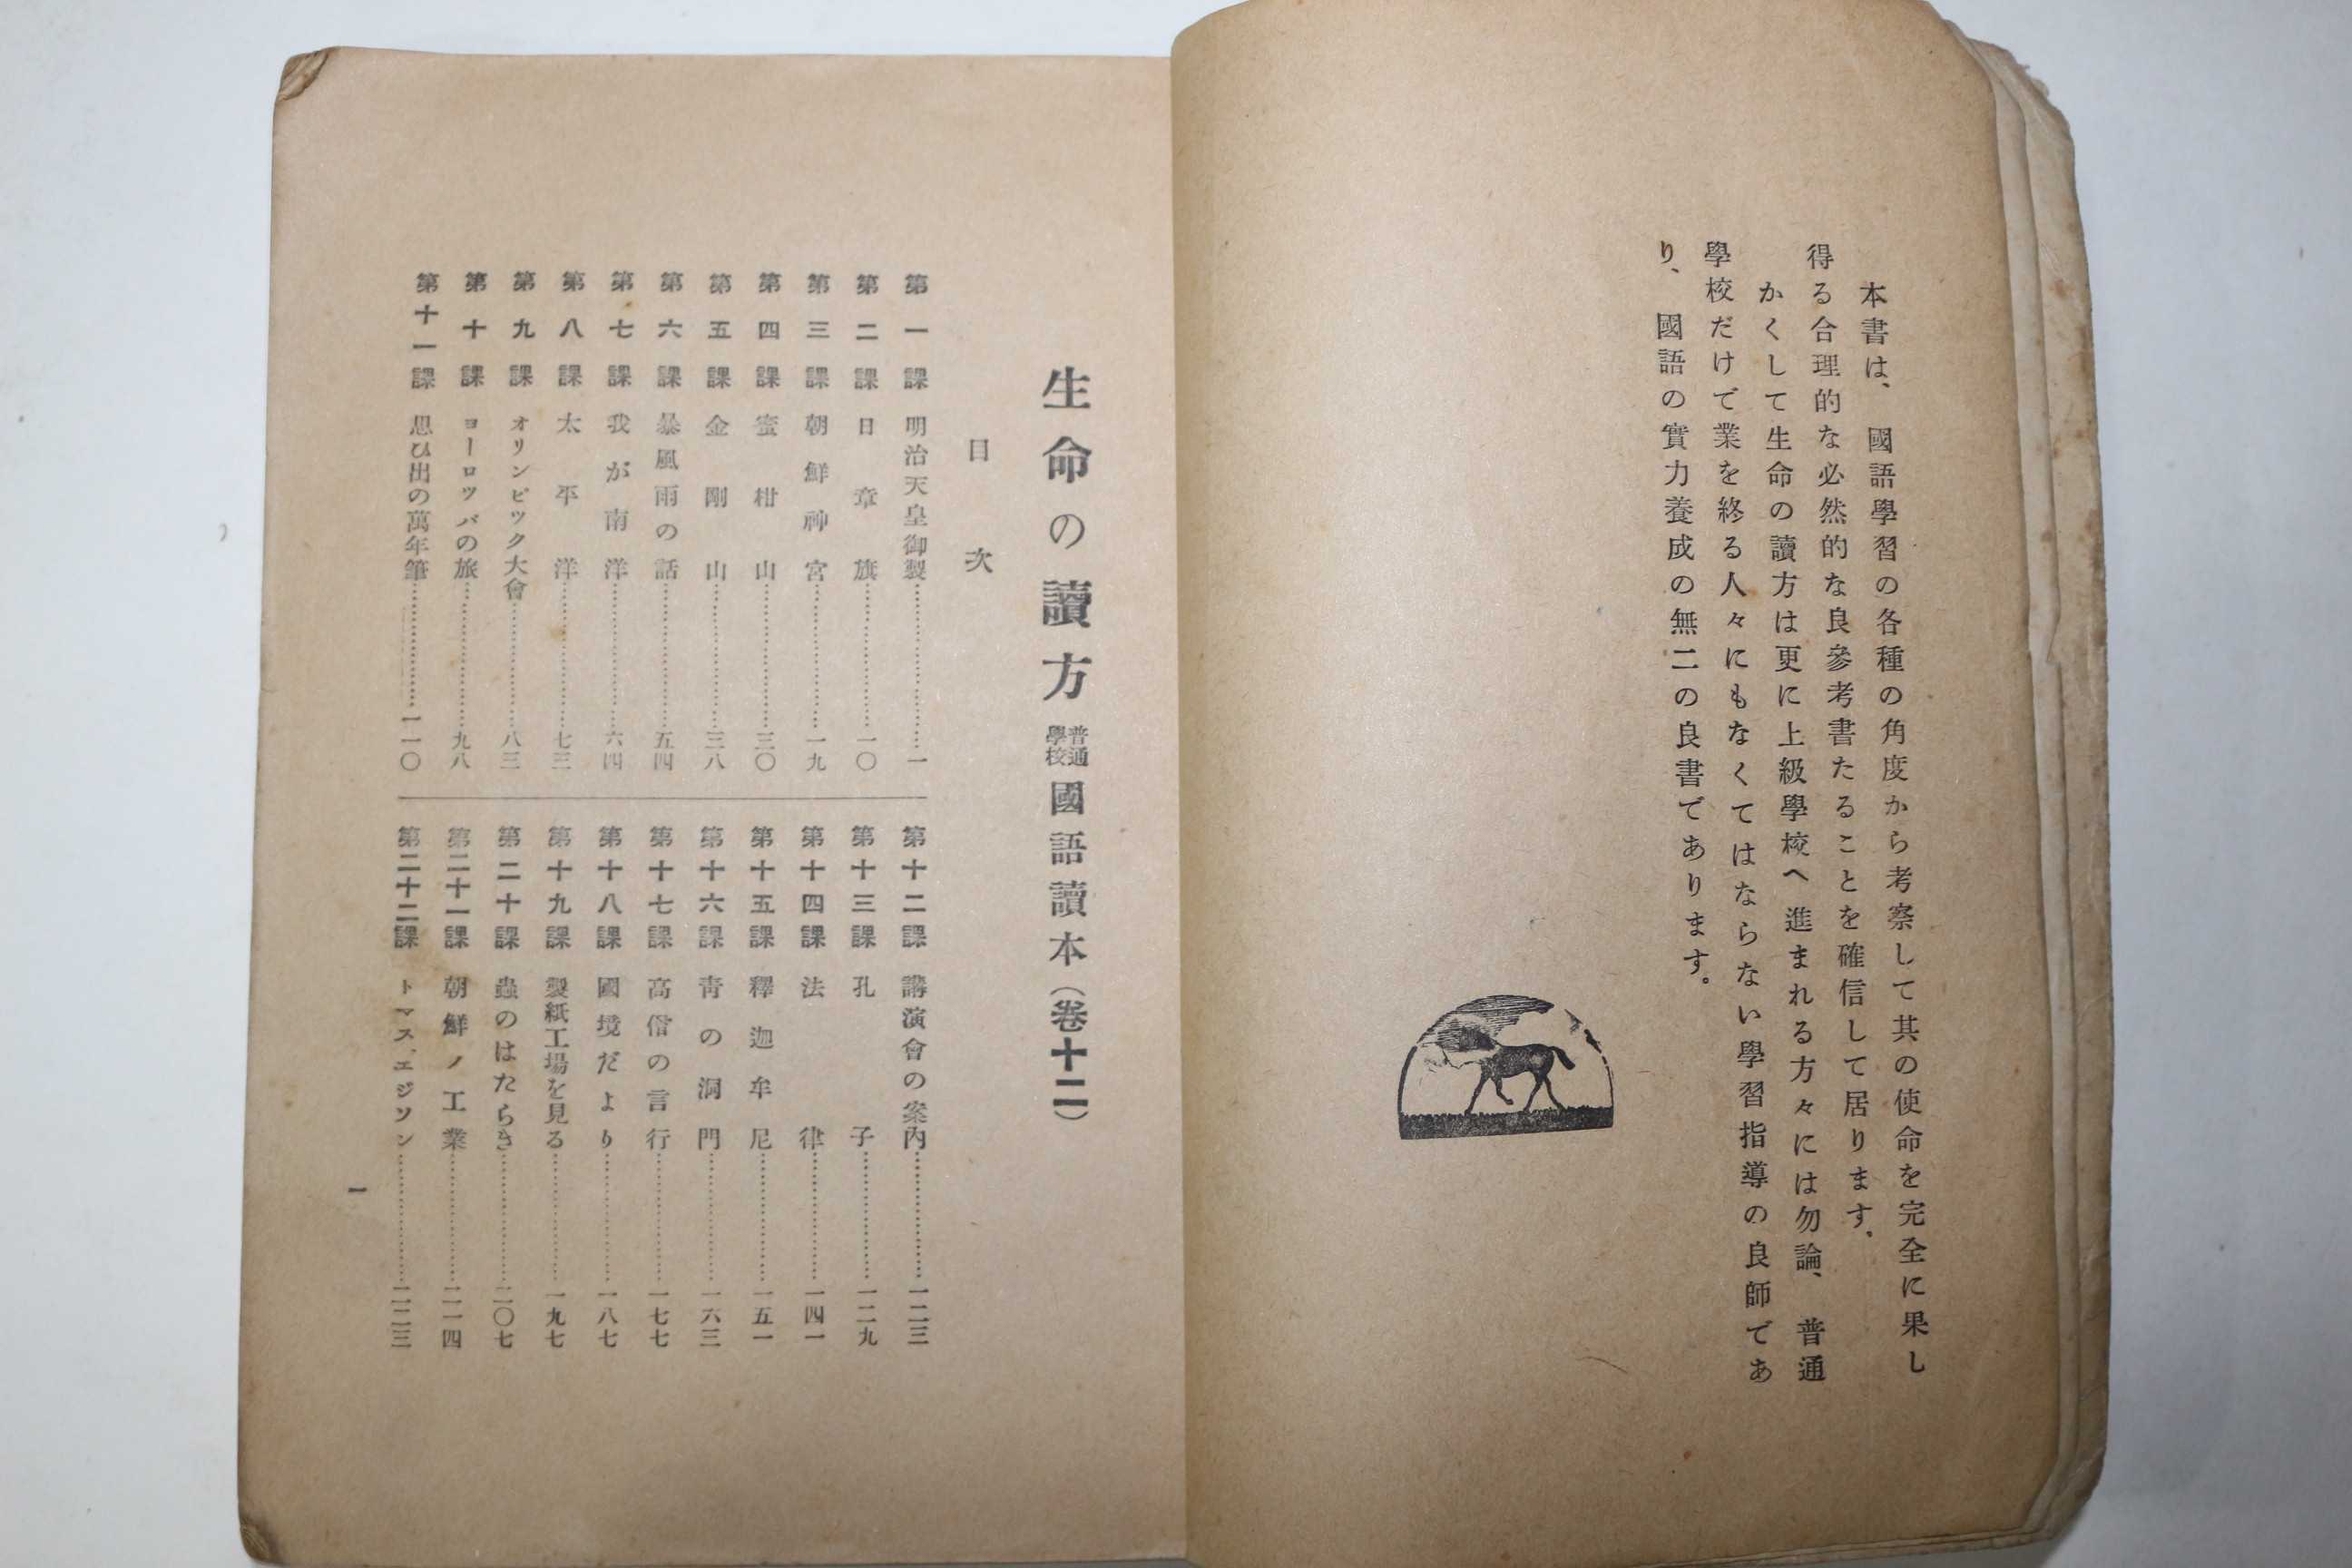 本書は、國語學習の各種の角度から考察して其の使命を完全に果し
得る合理的な必然的な良參考書たることを確信して居ります。
かくして生命の讀方は更に上級學校へ進まれる方々には勿論、普通
學校だけで業を終る人々にもなくてはならない學習指導の良師であ
り、國語の實力養成の無二の良書であります。
生命の讀方 普通學校 國語讀本(卷十二)
目次
第一課 明治天皇御製……………一
第二課 日章旗……………一〇
第三課 朝鮮神宮……………一九
第四課 蜜柑山……………三〇
第五課 金剛山……………三八
第六課 暴風雨の話……………五四
第七課 我が南洋……………六四
第八課 太平洋……………七三
第九課 オリンピック大會……………八三
第十課 ヨーロツパの旅……………九八
第十一課 思ひ出の萬年筆……………一一〇
第十二課 講演會の案內……………一二三
第十三課 孔子……………一二九
第十四課 法律……………一四一
第十五課 釋迦牟尼……………一五一
第十六課 靑の洞門……………一六三
第十七課 高僧の言行……………一七七
第十八課 國境だより……………一八七
第十九課 製紙工場を見る……………一九七
第二十課 蟲のはたらき……………二〇七
第二十一課 朝鮮ノ工業……………二一四
第二十二課 トマス、エジソン……………二二三
一